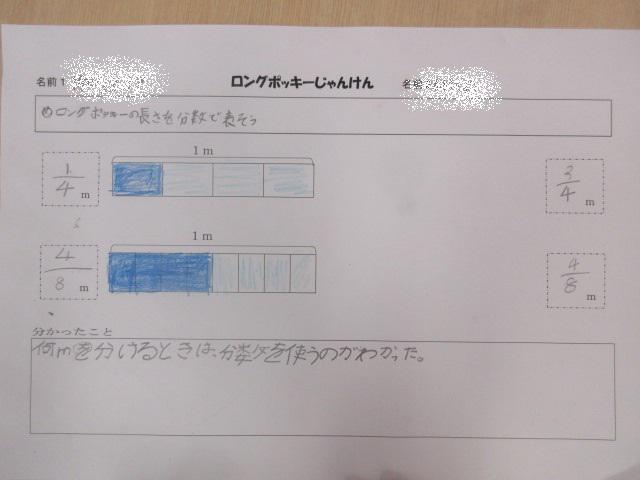 名前1 ロングポッキーじゃんけん 名前
めロングポッキーの長さを分数で表そう
1 m
1/4 m 3/4 m
1 m
4/8 m 4/8 m
分かったこと
何mを分けるときは、分数を使うのがわかった。